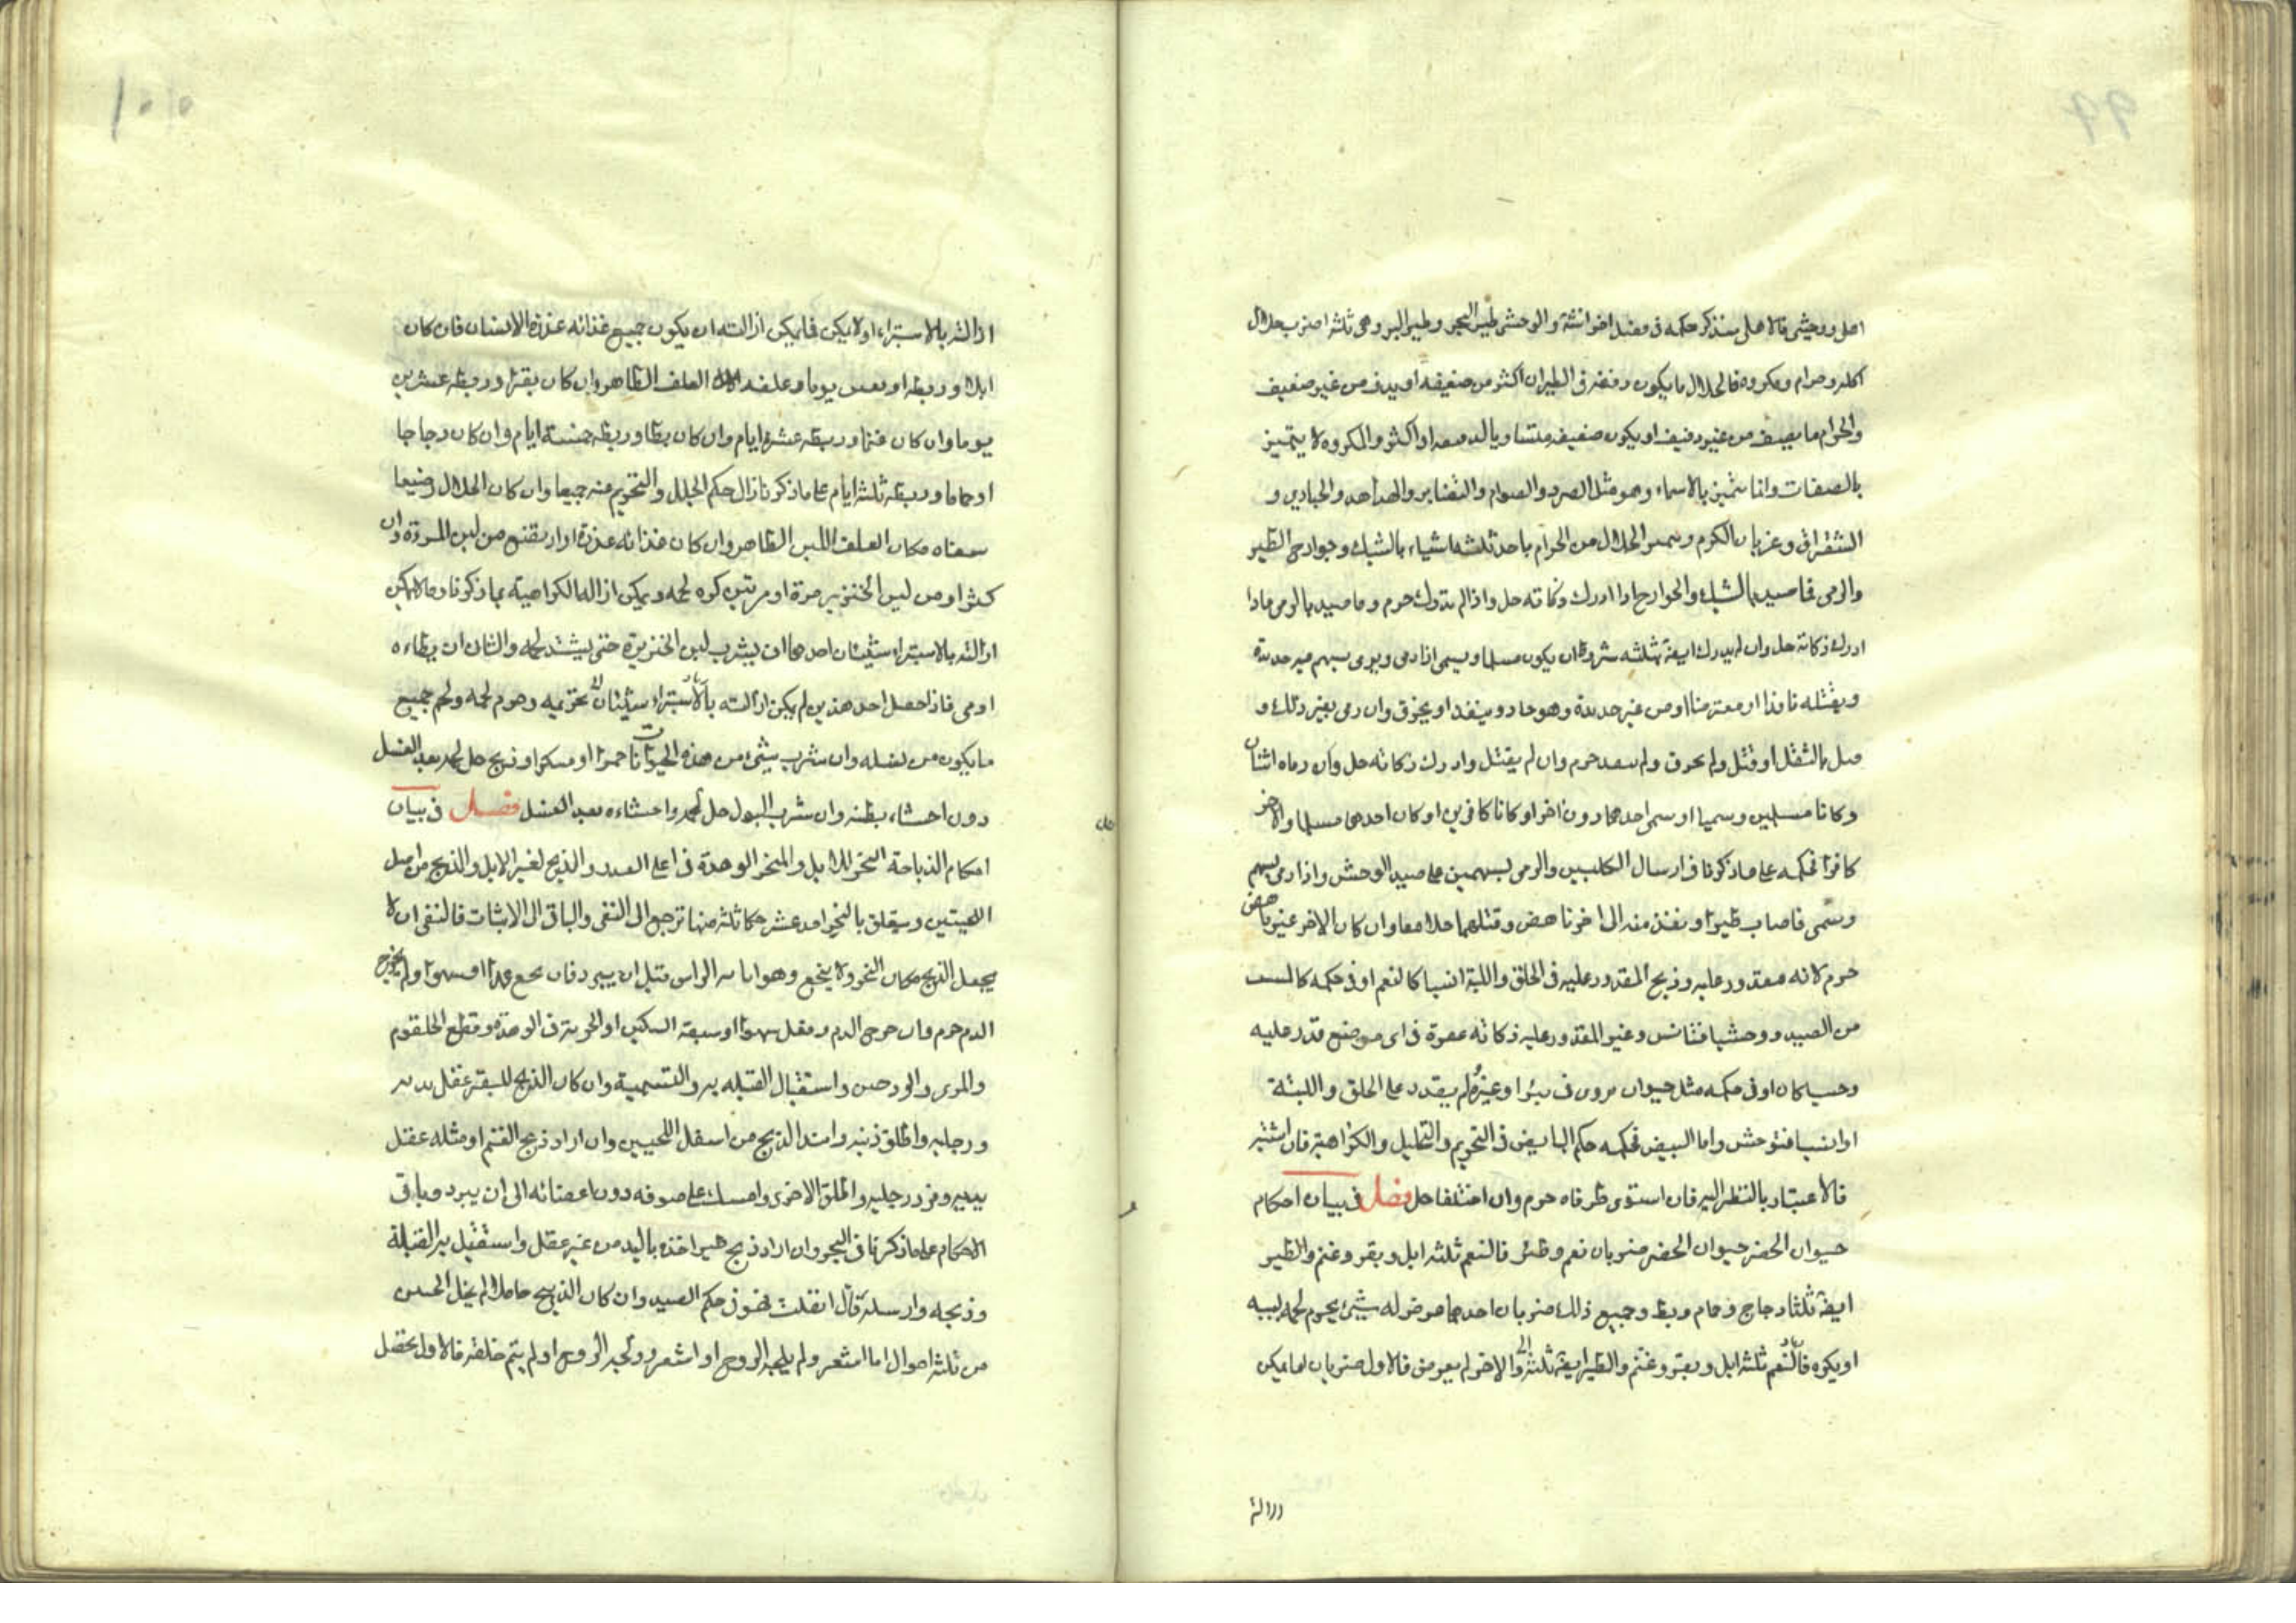 اهلى ووحشى فالاهلى سنذكر حكمه فى فصل اخر انشة والوحشى طير البحر وطير البر وهى ثلثة اضرب حلال
اكله وحرام ومكروه فالحلال ما يكون دفيفه فى الطيران اكثر من صفيفه او يدف من غير صفيف
والحرام ما يصف من غير دفيف او يكون صفيفه متساويا لدفيفه او اكثر والمكروه لا يتميز
بالصفات وانما يتميز بالاسماء وهو مثل الصرد والصوام والقنابر والهداهد والحبارى و
الشقراق وغربان الكرم ويصير الحلال من الحرام باحد ثلثة اشياء بالشبك وجوارح الطير
والرمى فما صيد بالشبك والجوارح اذا ادرك ذكاته حل واذا لم يدرك حرم وما صيد بالرمى فاذا
ادرك ذكاته حل وان لم يدرك ايضة بثلثه شروط ان يكون مسلما ويسمى اذا رمى ويرمى بسهم فيه حديدة
ويقتله نافذا او معترضا او من غير حديدة وهو حاد وينفذ او يخرق وان رمى بغير ذلك و
قتل بالثقل او قتل ولم يخرق ولم ينفذ حرم وان لم يقتل وادرك ذكاته حل وان رماه اثنان
وكانا مسلمين وسميا او سمى احدهما دون اخر او كانا كافرين او كان احدهما مسلما والاخر
كافرا فحكمه على ما ذكرنا فى ارسال الكلبين والرمى بسهمين على صيد الوحش واذا رمى بسهم
وسمى فاصاب طيرا ونفذ منه الى اخر ناهض وقتلهما حلا معا وان كان الاخر غير ناهض
حرم لانه مقدور عليه وذبح المقدور عليه فى الحلق واللبة انسيا كالنعم او فى حكمه
من الصيد ووحشيا فتانس وغير المقدور عليه ذكاته عقره فى اى موضع قدر عليه
وحشيا كان او فى حكمه مثل حيوان تردى فى بئر او غيره ولم يقدر على الحلق واللبة
او انسيا فتوحش واما البيض فحكمه حكم البايض فى التحريم والتحليل والكراهية فان اشتبه
فالاعتبار بالنظر اليه فان استوى طرفاه حرم وان اختلفا حل فصل فى بيان احكام
حيوان الحضر حيوان الحضر ضربان نعم وطير فالنعم ثلثة ابل وبقر وغنم والطير
ايضة ثلثة دجاج وحمام وبط وجميع ذلك ضربان احدهما عرض له شيئ يحرم لحمه لسببه
او يكره فالنعم ثلثة ابل وبقر وغنم والطير ايضة ثلثة والاخر لم يعرض فالاول ضربان اما يمكن
ازالته
ازالته بالاستبراء او لا يمكن فما يمكن ازالته ان يكون جميع غذائه عذرة الانسان فان كان
ابلا وربطه اربعين يوما وعلفه العلف الطاهر وان كان بقرا وربطه عشرين
يوما وان كان غنما وربطه عشرة ايام وان كان بطا وربطه خمسة ايام وان كان دجاجا
او حماما وربطه ثلثة ايام على ما ذكرنا زال حكم الجلل والتحريم عنه جميعا وان كان الحلال رضيعا
سقناه مكان العلف اللبن الطاهر وان كان غذائه عذرة او ارتضع من لبن المرءة وان
كثر او من لبن الخنزير مرة او مرتين كره لحمه ويمكن ازالة الكراهية بما ذكرنا وما لا يمكن
ازالته بالاستبراء شيئان احدهما ان يشرب لبن الخنزيرة حتى يشتد لحمه والثانى ان يطاءه
ادمى فاذا حصل احد هذين لم يكن ازالته بالاستبراء شيئان تحريمه وحرم لحمه ولحم جميع
ما يكون من نسله وان شرب شيئ من هذه الحيوانات خمرا او مسكرا وذبح حل لحمه بعد الغسل
دون احشاء بطنه وان شرب البول حل لحمه واحشاءه بعد الغسل فصل فى بيان
احكام الذباحة النحر للابل والمنحر الوهدة فى اعلى الصدر والذبح لغير الابل والذبح من اسفل
اللحيتين ويتعلق بالنحر احد عشر حكما ثلثة منها ترجع الى النفى والباقى الى الاثبات فالنفى ان لا
يجعل الذبح مكان النحر ولا ينخع وهو ابانة الراس قبل ان يبرد فان نخع عمدا او سهوا ولم يخرج
الدم حرم فان خرج الدم وفعل سهوا او سبقه السكين او الحربة فى الوهدة وقطع الحلقوم
والمرى والودجين واستقبال القبلة به والتسمية وان كان الذبح للبقر عقل يديه
ورجليه واطلق ذنبه وابتدا الذبح من اسفل اللحيين وان اراد ذبح الغنم او مثله عقل
يديه وفرد رجليه واطلق الاخرى وامسك على صوفه دون اعضائه الى ان يبرد وباقى
الاحكام على ما ذكرنا فى النحر وان اراد ذبح طير اخذه باليد من غير عقل واستقبل به القبلة
وذبحه وارسله فان انفلت فهو فى حكم الصيد وان كان الذبيح حاملا لم يخل الجنين
من ثلثة احوال اما اشعر ولم يلجه الروح او اشعر وولجه الروح او لم يتم خلقة فالاول يحصل